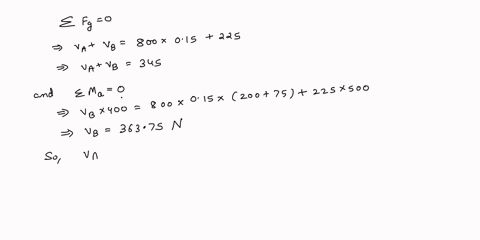 ∑ Fy = 0
⇒ VA + VB = 800 × 0.15 + 225
⇒ VA + VB = 345
and ∑ Ma = 0
⇒ VB × 400 = 800 × 0.15 × (200 + 75) + 225 × 500
⇒ VB = 363.75 N
So, VA